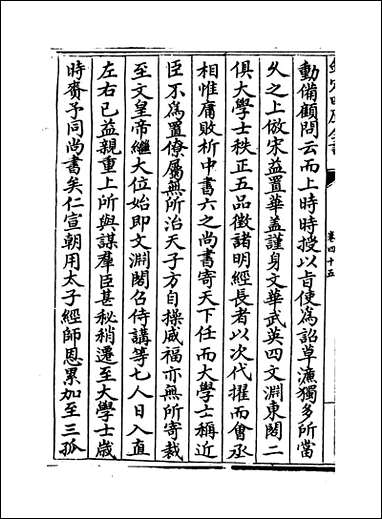 欽定四庫全書
卷四十五
動備顧問云而上時時授以㫖使為詔草濂獨多所當
久之上倣宋益置華蓋謹身文華武英四文淵東閣二
俱大學士秩正五品徵諸明經長者以次代擢而會丞
相惟庸敗析中書六之尚書寄天下任而大學士稱近
臣不為置僚屬無所治天子方自操威福亦無所寄裁
至文皇帝繼大位始即文淵閣召侍講等七人日入直
左右已益親重上所與謀羣臣甚秘稍遷至大學士歲
時賚予同尚書矣仁宣朝用太子經師恩累加至三孤